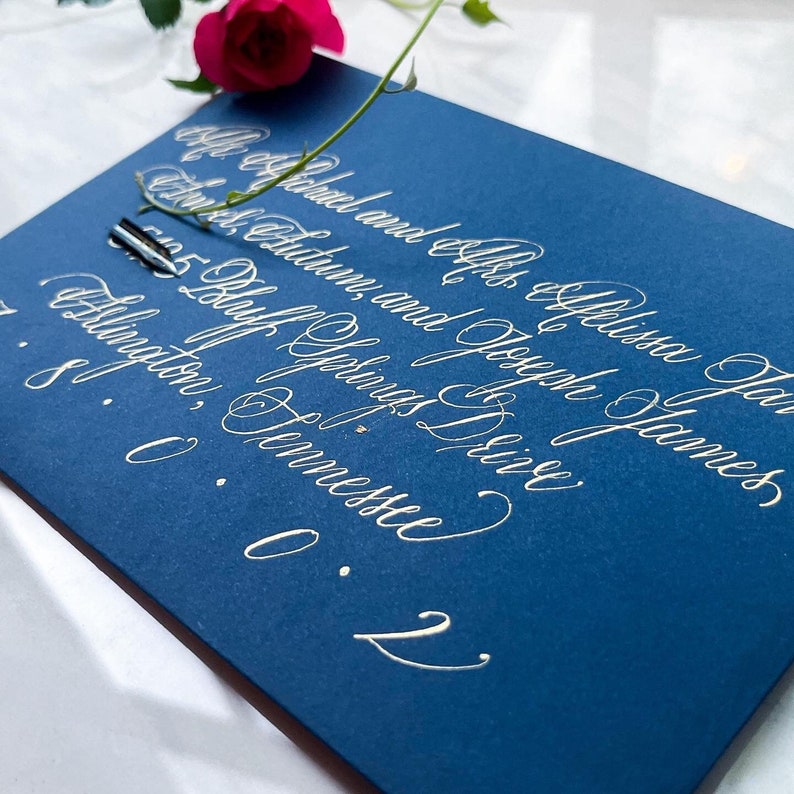 Mr. Michael and Mrs. Melissa Jam
Autumn, and Joseph James,
Bluff Springs Drive
Arlington, Tennessee
7 . 8 . 0 . 0 . 2